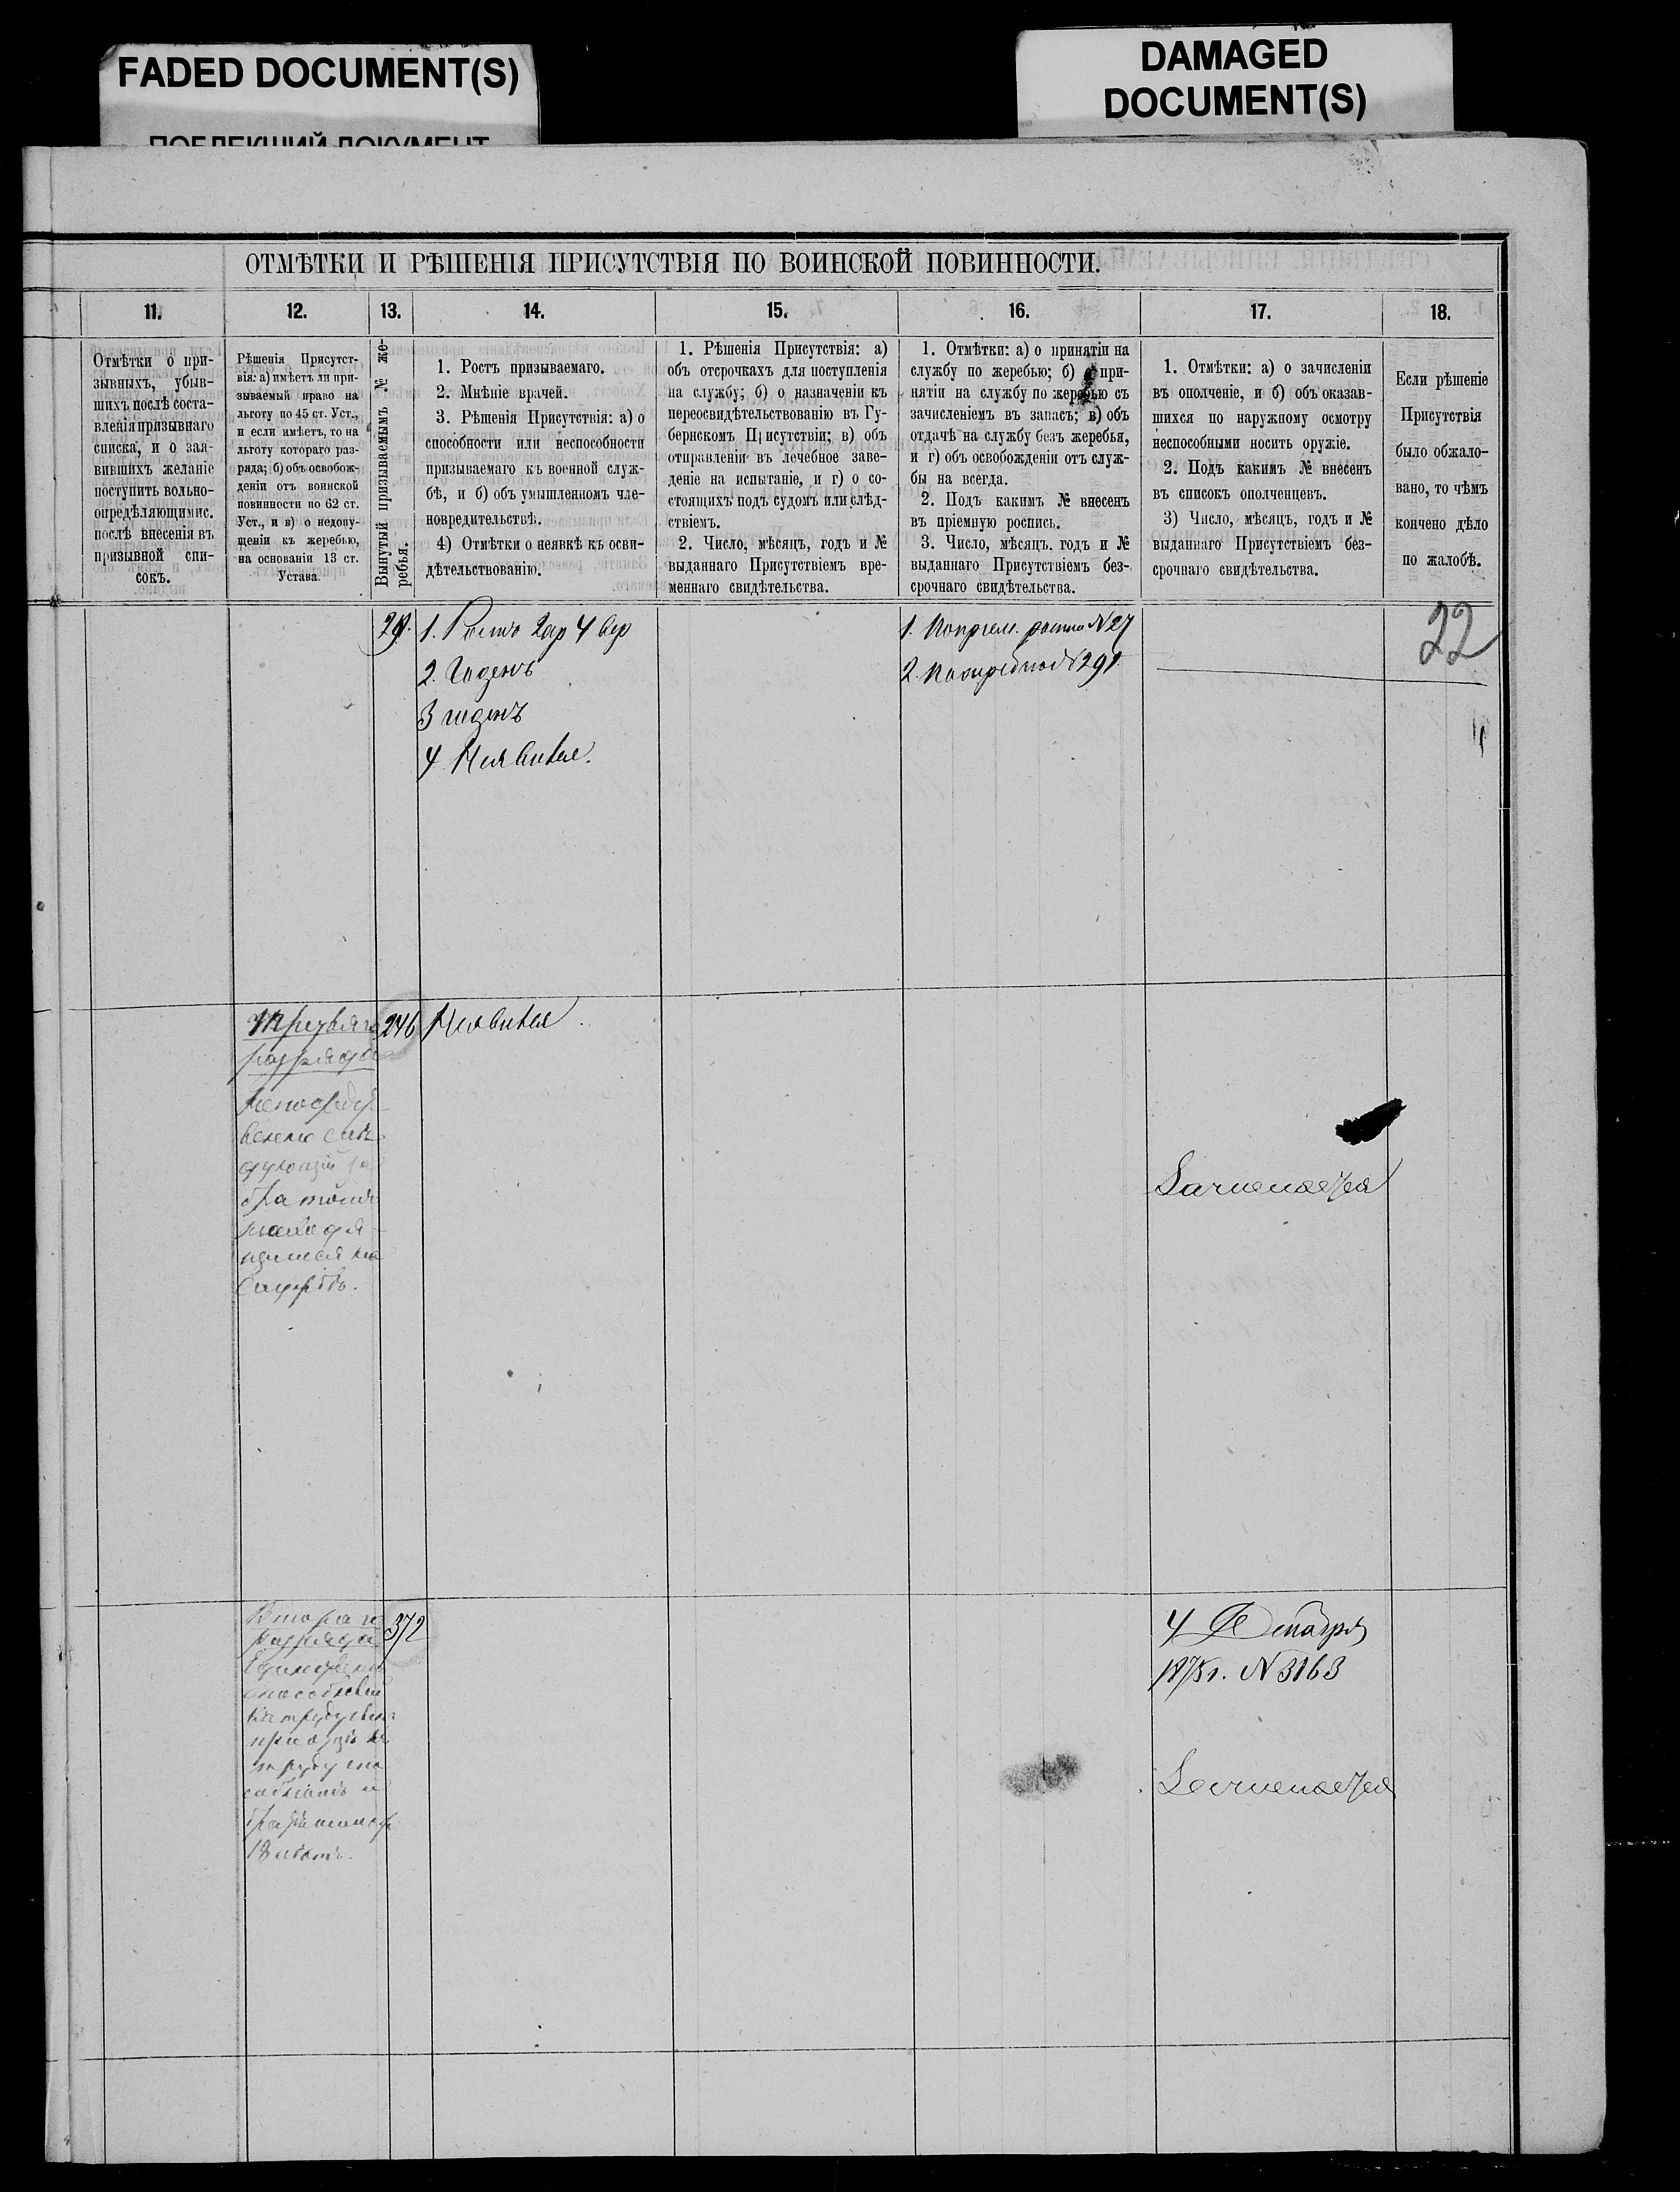 FADED DOCUMENT(S)
ПОБЛЕКШИЙ ДОКУМЕНТ
DAMAGED
DOCUMENT(S)
ОТМѢТКИ И РѢШЕНІЯ ПРИСУТСТВІЯ ПО ВОИНСКОЙ ПОВИННОСТИ.
11.
12.
13.
14.
15.
16.
17.
18.
Отмѣтки о при-
зывныхъ, убыв-
шихъ послѣ соста-
вленія призывнаго
списка, и о зая-
вившихъ желаніе
поступить вольно-
опредѣляющимис.
послѣ внесенія въ
призывной спи-
сокъ.
Рѣшенія Присутст-
вія: а) имѣетъ ли при-
зываемый право на
льготу по 45 ст. Уст.,
и если имѣетъ, то на
льготу котораго раз-
ряда; б) объ освобож-
деніи отъ воинской
повинности по 62 ст.
Уст., и в) о недопу-
щеніи къ жеребью,
на основаніи 13 ст.
Устава.
Вынутый призываемымъ № же-
ребья.
1. Ростъ призываемаго.
2. Мнѣніе врачей.
3. Рѣшенія Присутствія: а) о
способности или неспособности
призываемаго къ военной служ-
бѣ, и б) объ умышленномъ чле-
новредительствѣ.
4) Отмѣтки о неявкѣ къ осви-
дѣтельствованію.
1. Рѣшенія Присутствія: а)
объ отсрочкахъ для поступленія
на службу; б) о назначеніи къ
переосвидѣтельствованію въ Гу-
бернскомъ Присутствіи; в) объ
отправленіи въ лечебное заве-
деніе на испытаніе, и г) о со-
стоящихъ подъ судомъ или слѣд-
ствіемъ.
2. Число, мѣсяцъ, годъ и №
выданнаго Присутствіемъ вре-
меннаго свидѣтельства.
1. Отмѣтки: а) о принятіи на
службу по жеребью; б) при-
нятіи на службу по жеребью съ
зачисленіемъ въ запасъ; в) объ
отдачѣ на службу безъ жеребья,
и г) объ освобожденіи отъ служ-
бы на всегда.
2. Подъ какимъ № внесенъ
въ пріемную роспись.
3. Число, мѣсяцъ, годъ и №
выданнаго Присутствіемъ без-
срочнаго свидѣтельства.
1. Отмѣтки: а) о зачисленіи
въ ополченіе, и б) объ оказав-
шихся по наружному осмотру
неспособными носить оружіе.
2. Подъ какимъ № внесенъ
въ списокъ ополченцевъ.
3) Число, мѣсяцъ, годъ и №
выданнаго Присутствіемъ без-
срочнаго свидѣтельства.
Если рѣшеніе
Присутствія
было обжало-
вано, то чѣмъ
кончено дѣло
по жалобѣ.
22
1. Ростъ 2 ар 4 вер
2. Годенъ
3 годенъ
4 Неявился.
1. По прiем. росписи N 27
2. N 291.
Третьяго
разряда
непосред-
ственно слѣ-
дующій за
братомъ
находя-
щимся на
246
Неявился
Зачисляется
Втораго
разряда
способный
къ труду
при отцѣ
труду
и
18 лѣтъ.
372
4 Декабря
1875 г. N 3163
Зачисляется